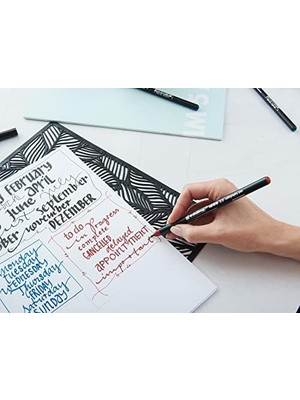 FEBRUARY
APRIL
JUNE
september
november
BER DEZEMBER
monday
TUESDAY
WEDNESDAY
thursday
FRIDAY
saturday
SUNDAY
to do
in progress
complete
CANCELLED delayed
APPOINTMENT
important